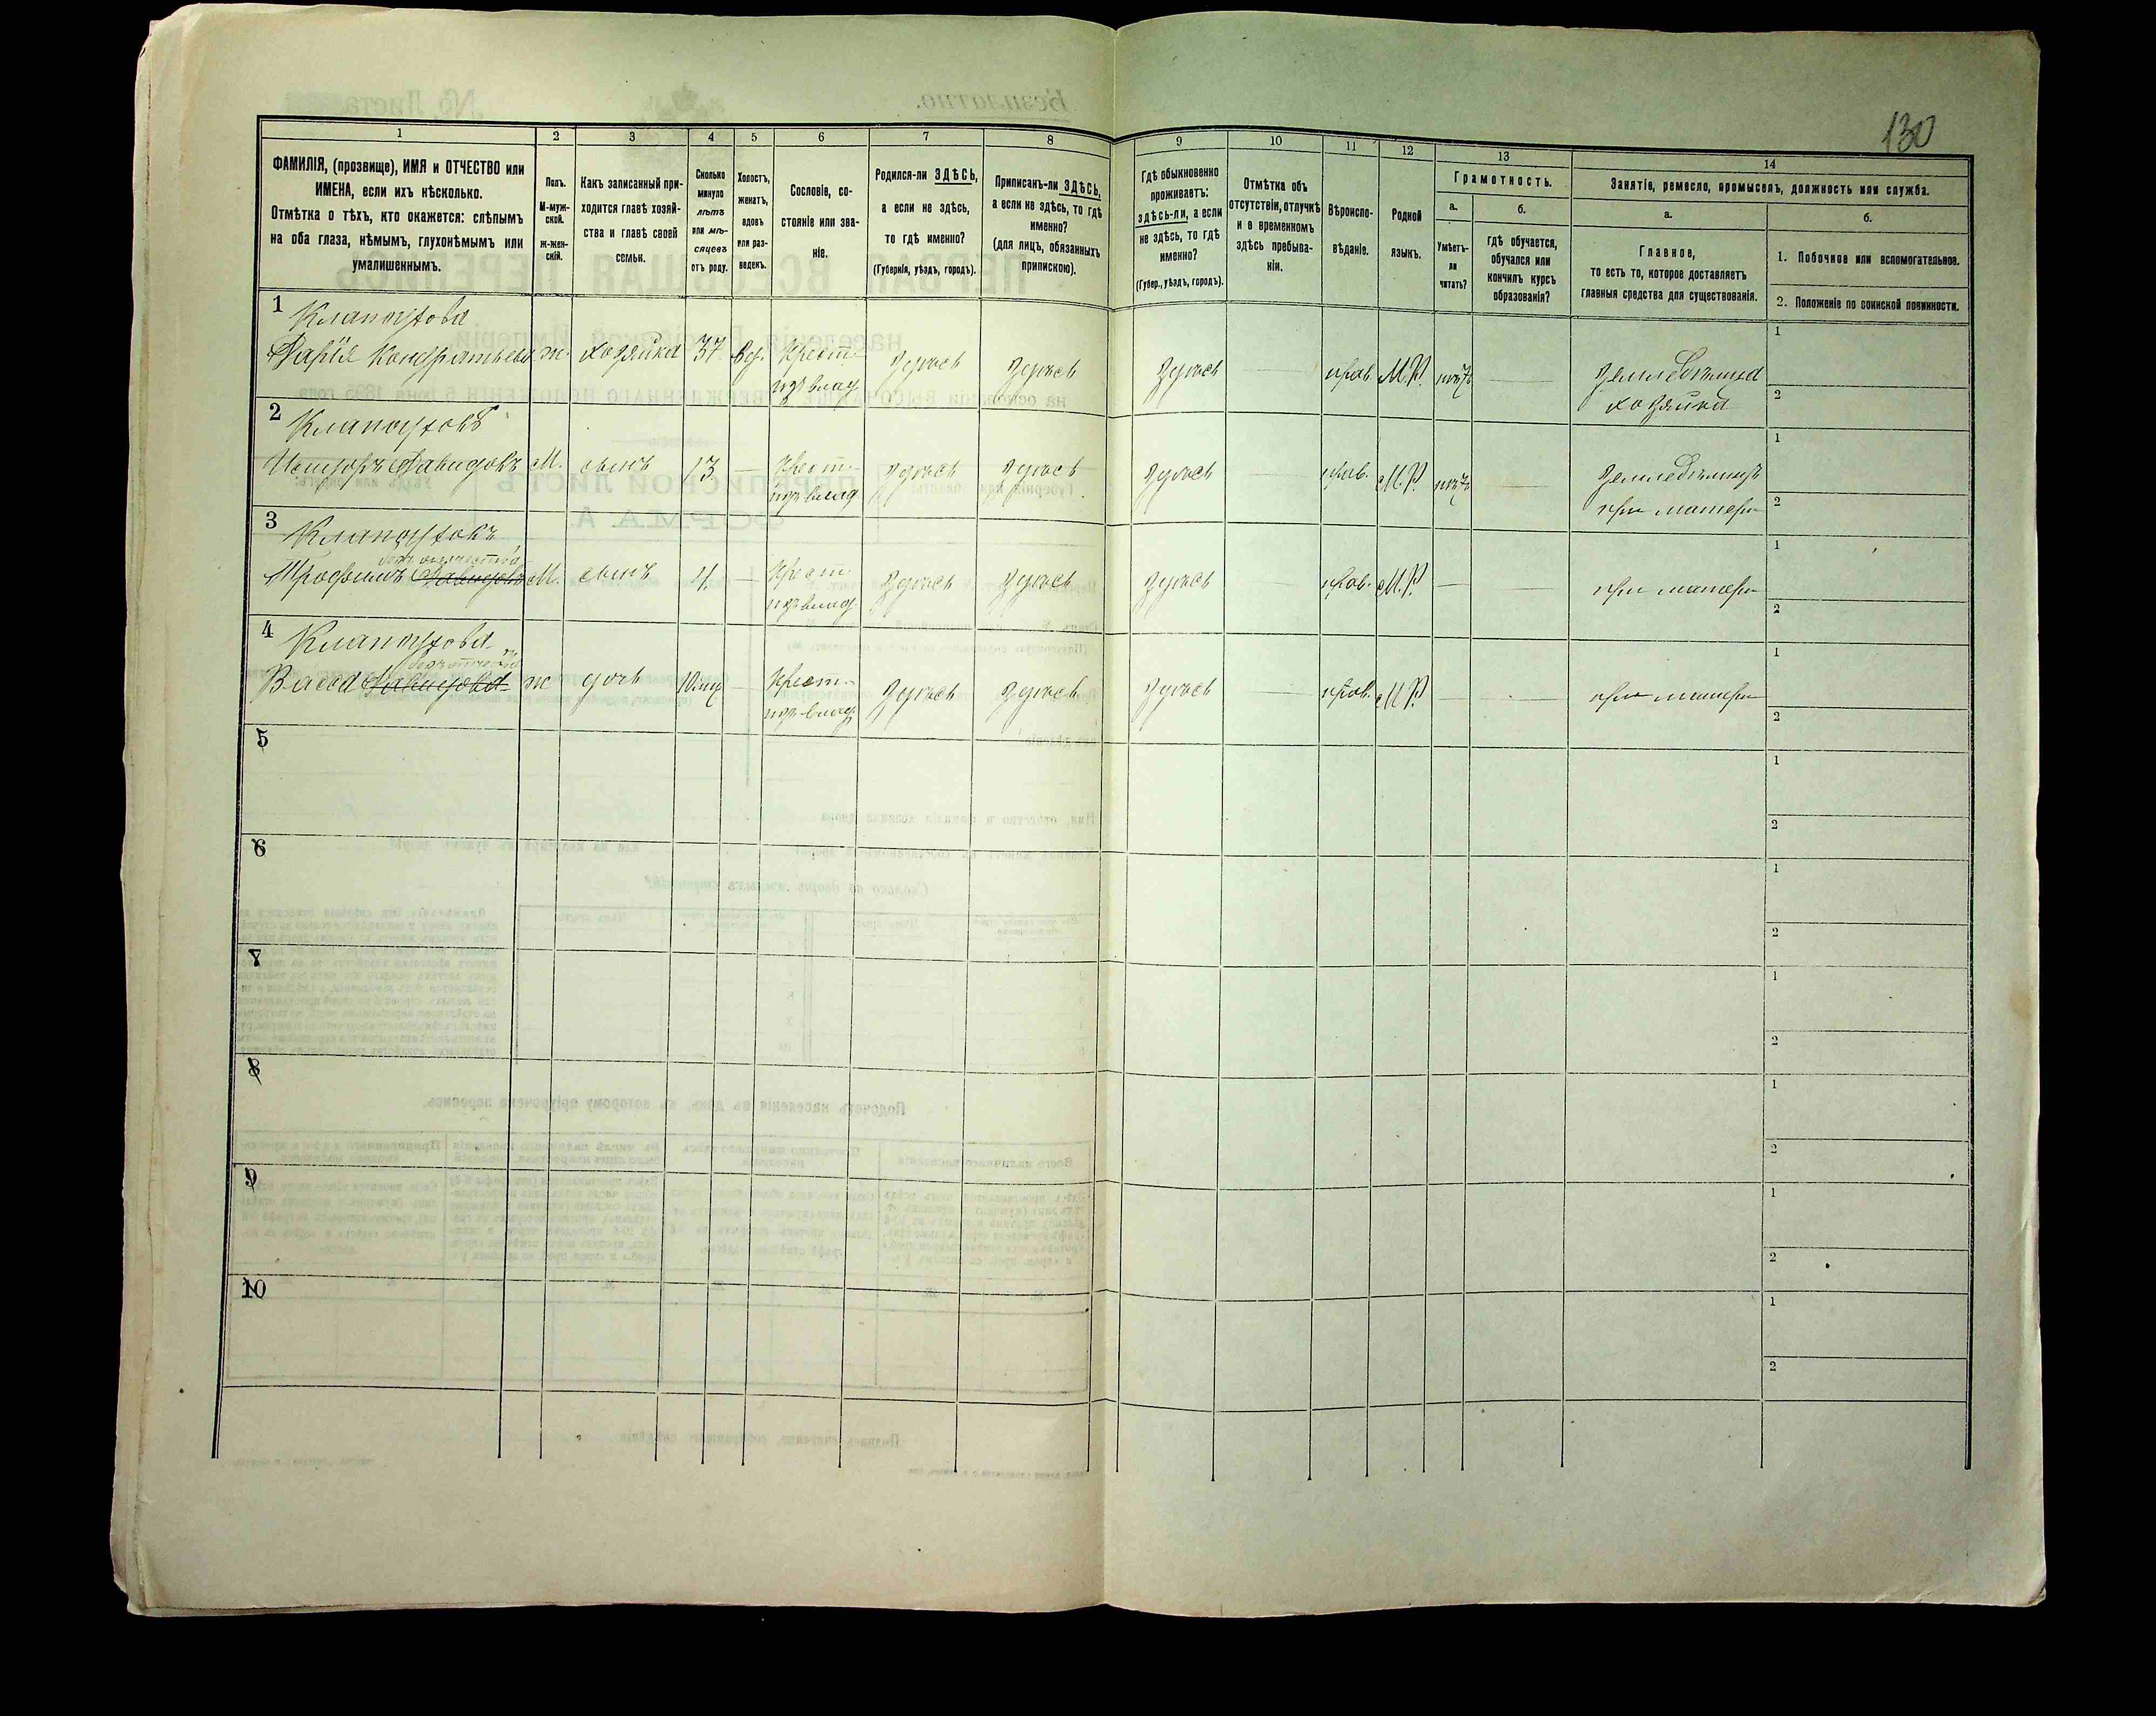 130
1
2
3
4
5
6
7
8
9
10
11
12
13
14
ФАМИЛІЯ, (прозвище), ИМЯ и ОТЧЕСТВО или
ИМЕНА, если ихъ нѣсколько.
Отмѣтка о тѣхъ, кто окажется: слѣпымъ
на оба глаза, нѣмымъ, глухонѣмымъ или
умалишеннымъ.
Полъ.
М-муж-
ской.
ж-жен-
скій.
Какъ записанный при-
ходится главѣ хозяй-
ства и главѣ своей
семьи.
Сколько
минуло
лѣтъ
или мѣ-
сяцевъ
отъ роду.
Холостъ,
женатъ,
вдовъ
или раз-
веденъ.
Сословіе, со-
стояніе или зва-
ніе.
Родился-ли ЗДѢСЬ,
а если не здѣсь,
то гдѣ именно?
(Губернія, уѣздъ, городъ).
Приписанъ-ли ЗДѢСЬ,
а если не здѣсь, то гдѣ
именно?
(для лицъ, обязанныхъ
припискою).
Гдѣ обыкновенно
проживаетъ:
здѣсь-ли, а если
не здѣсь, то гдѣ
именно?
(Губер., уѣздъ, городъ).
Отмѣтка объ
отсутствіи, отлучкѣ
и о временномъ
здѣсь пребыва-
ніи.
Вѣроиспо-
вѣданіе.
Родной
языкъ.
Грамотность.
а.
Умѣетъ-
ли
читать?
б.
гдѣ обучается,
обучался или
кончилъ курсъ
образованія?
Занятіе, ремесло, промыселъ, должность или служба.
а.
Главное,
то есть то, которое доставляетъ
главныя средства для существованія.
б.
1. Побочное или вспомогательное.
2. Положеніе по воинской повинности.
1
Клапоухова
Дарія Кондратьева ж. хозяйка 37. Вд. Крест. здѣсь здѣсь здѣсь — прав. М.Р. нѣтъ — Земледѣлица 1
изъ влад. хозяйка 2
2
Клапоуховъ
Давидовъ М. сынъ 13. — Крест. здѣсь здѣсь здѣсь — прав. М.Р. нѣтъ — Земледѣлецъ 1
изъ влад. при матери 2
3
Клапоуховъ
безъ отчества
Трофимъ Давидовъ М. сынъ 4. — Крест. здѣсь здѣсь здѣсь — прав. М.Р. — — при матери 1
изъ влад. 2
4
Клапоухова
Васса Давидова ж дочь 10 мѣс — Крест. здѣсь здѣсь здѣсь — прав. М.Р. — — при матери 1
изъ влад. 2
5 1
2
6 1
2
7 1
2
8 1
2
9 1
2
10 1
2